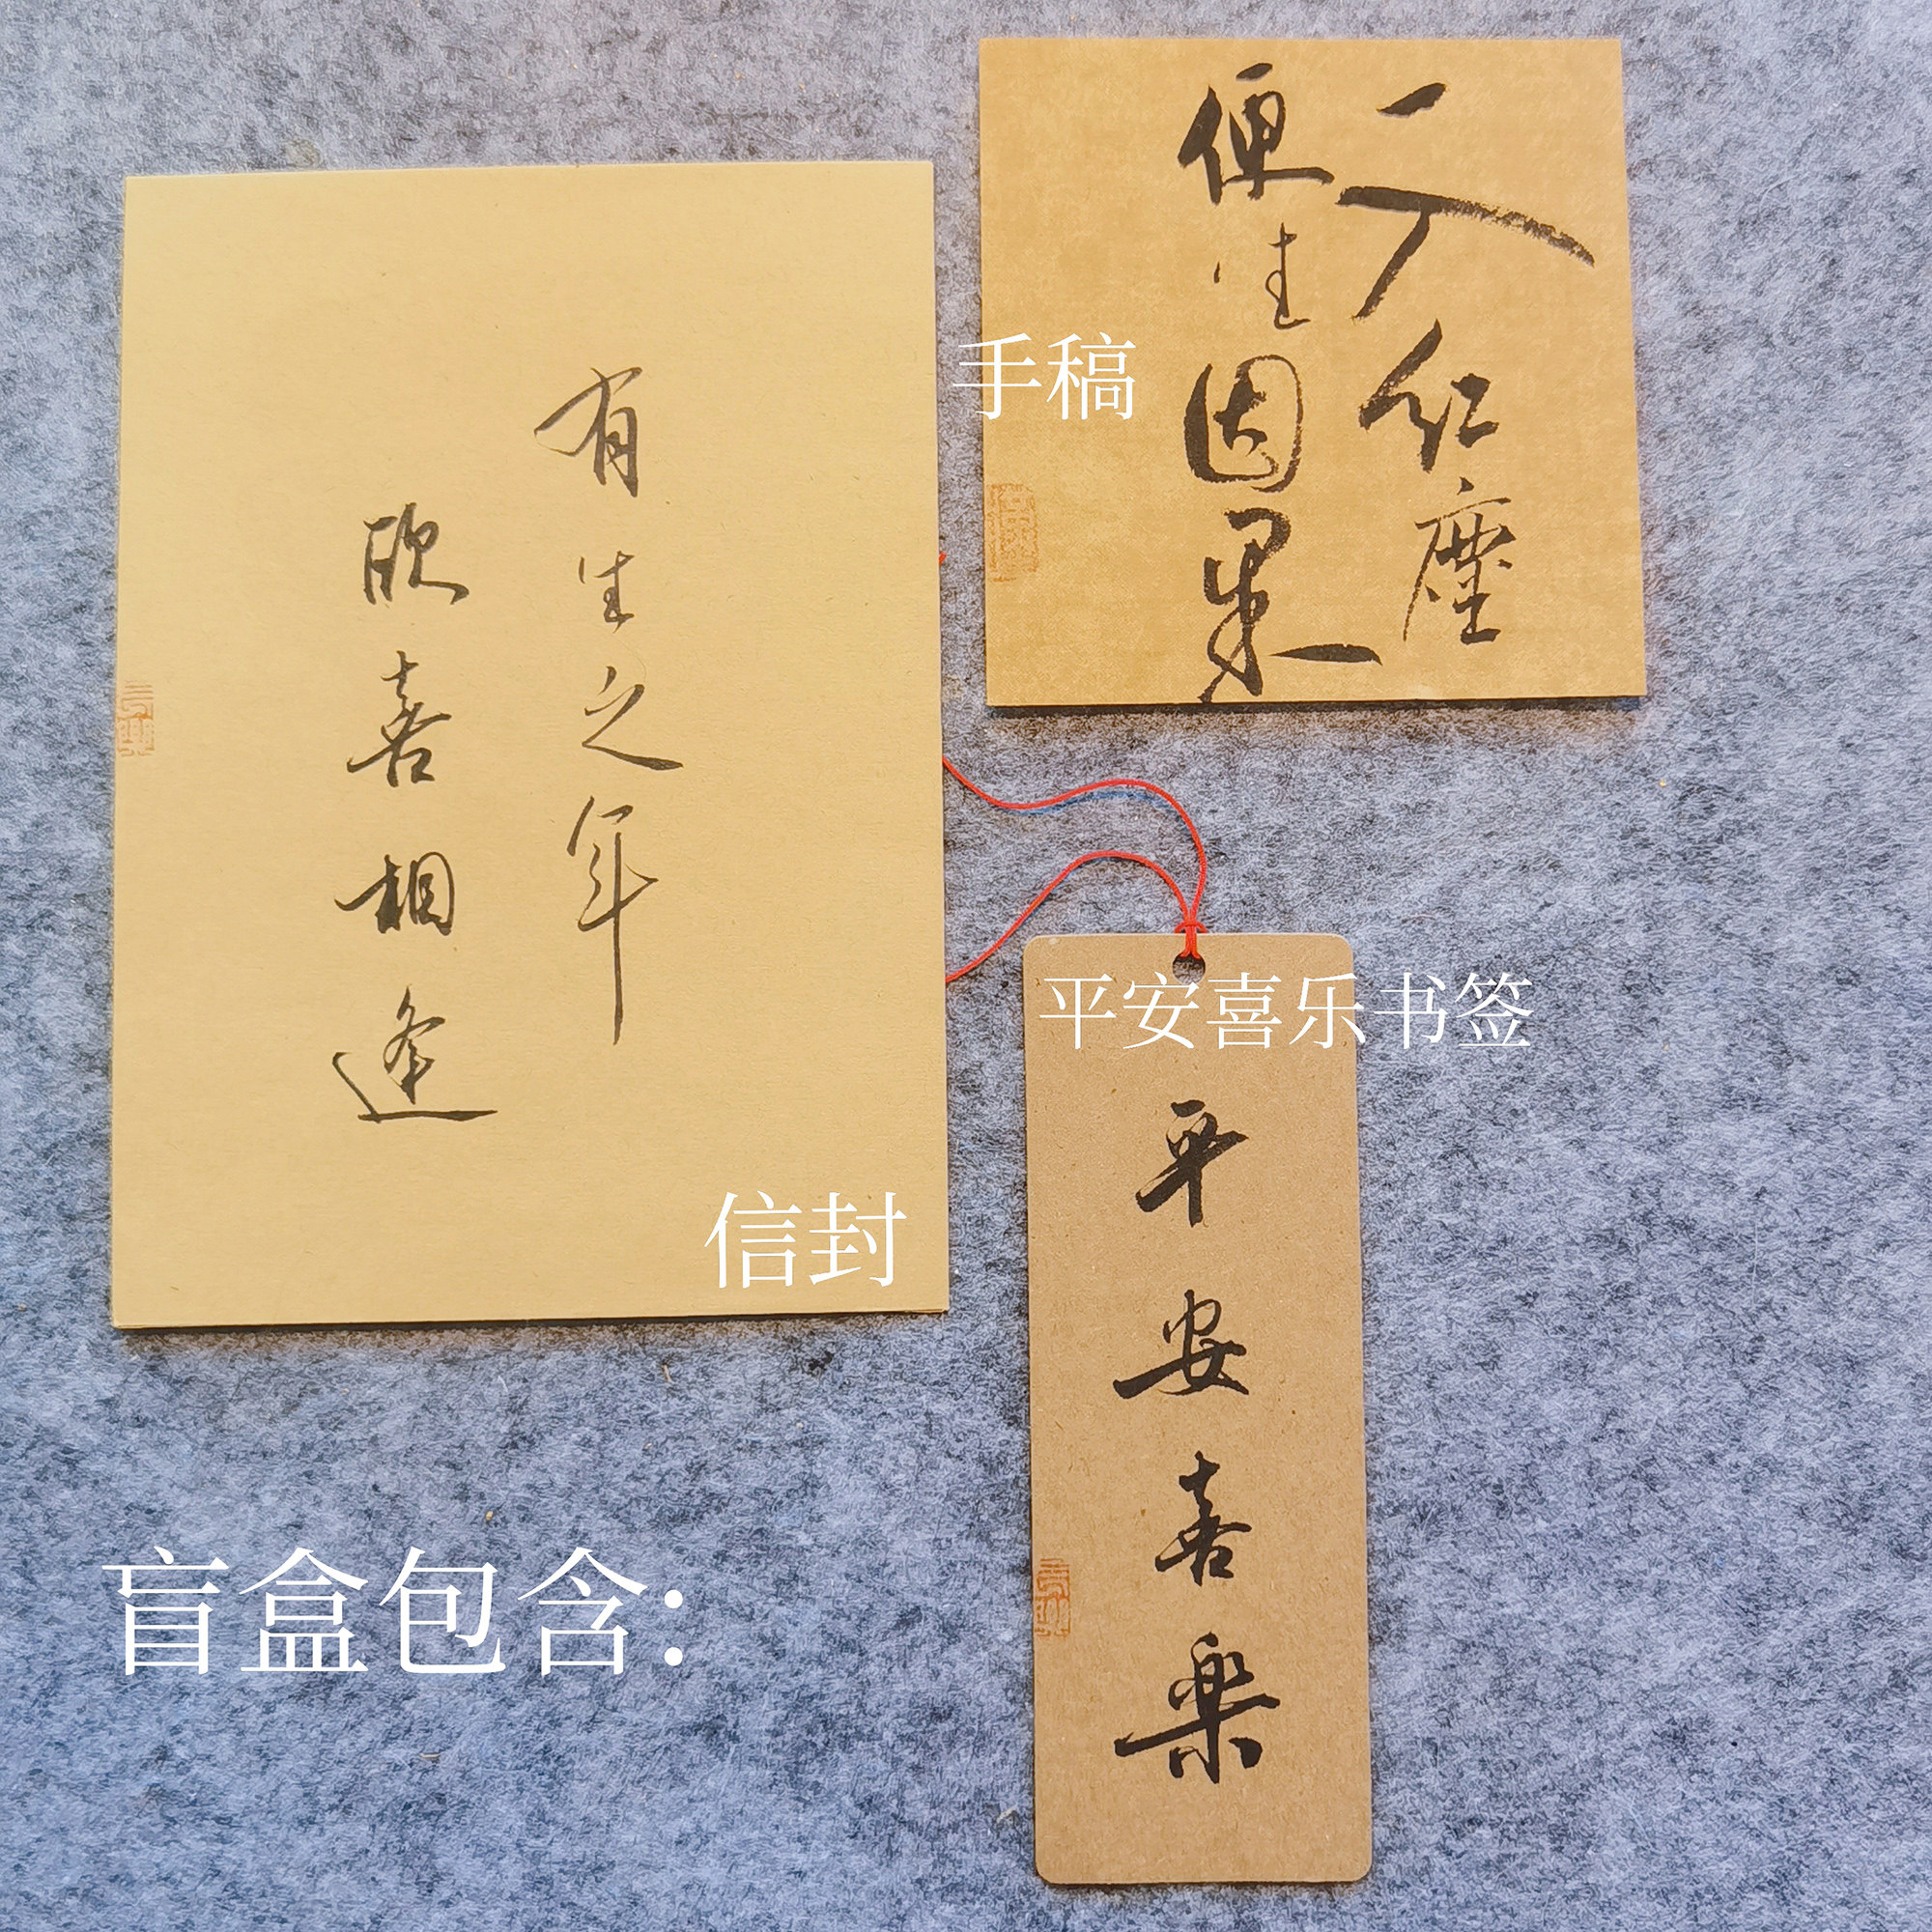 有生之年
欣喜相逢
信封
一入红尘
便生因果
手稿
平安喜乐书签
平安喜樂
盲盒包含: